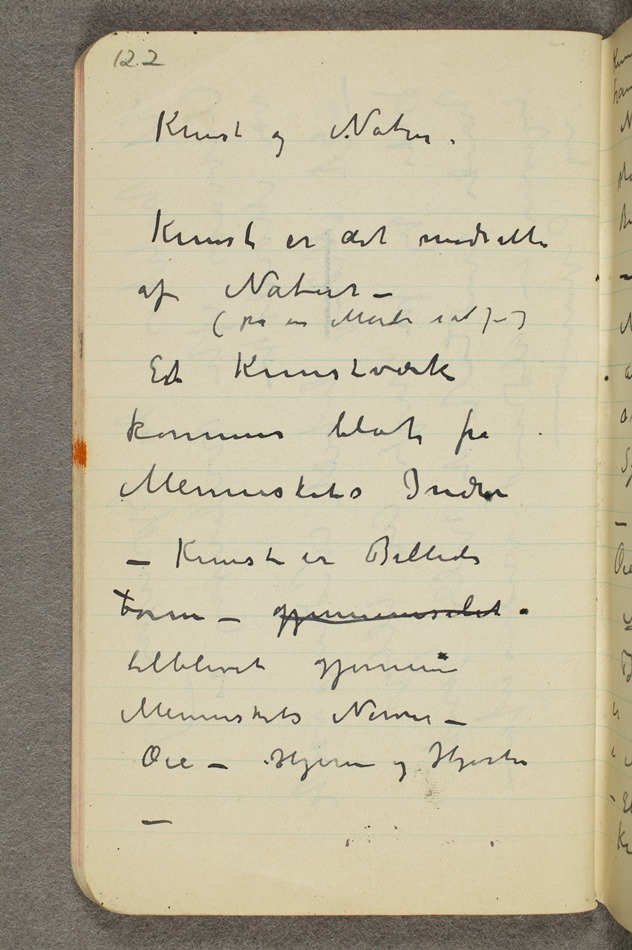 122
Kunst og Natur.
Kunst er det modsatte
af Natur –
(på en Måde sat)
Et Kunstværk
kommer blot fra
Menneskets Indre
– Kunst er Billeds
form –
tilblivet gjennem
Menneskets Nerver –
Øie – Hjerne og Hjerte
–